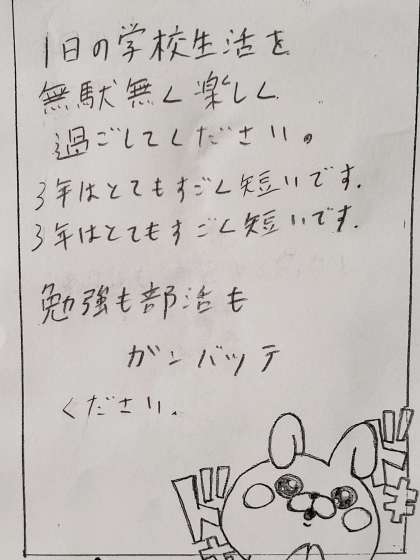 1日の学校生活を
無駄無く楽しく
過ごしてください。
3年はとてもすごく短いです.
3年はとてもすごく短いです.
勉強も部活も
ガンバッテ
ください.